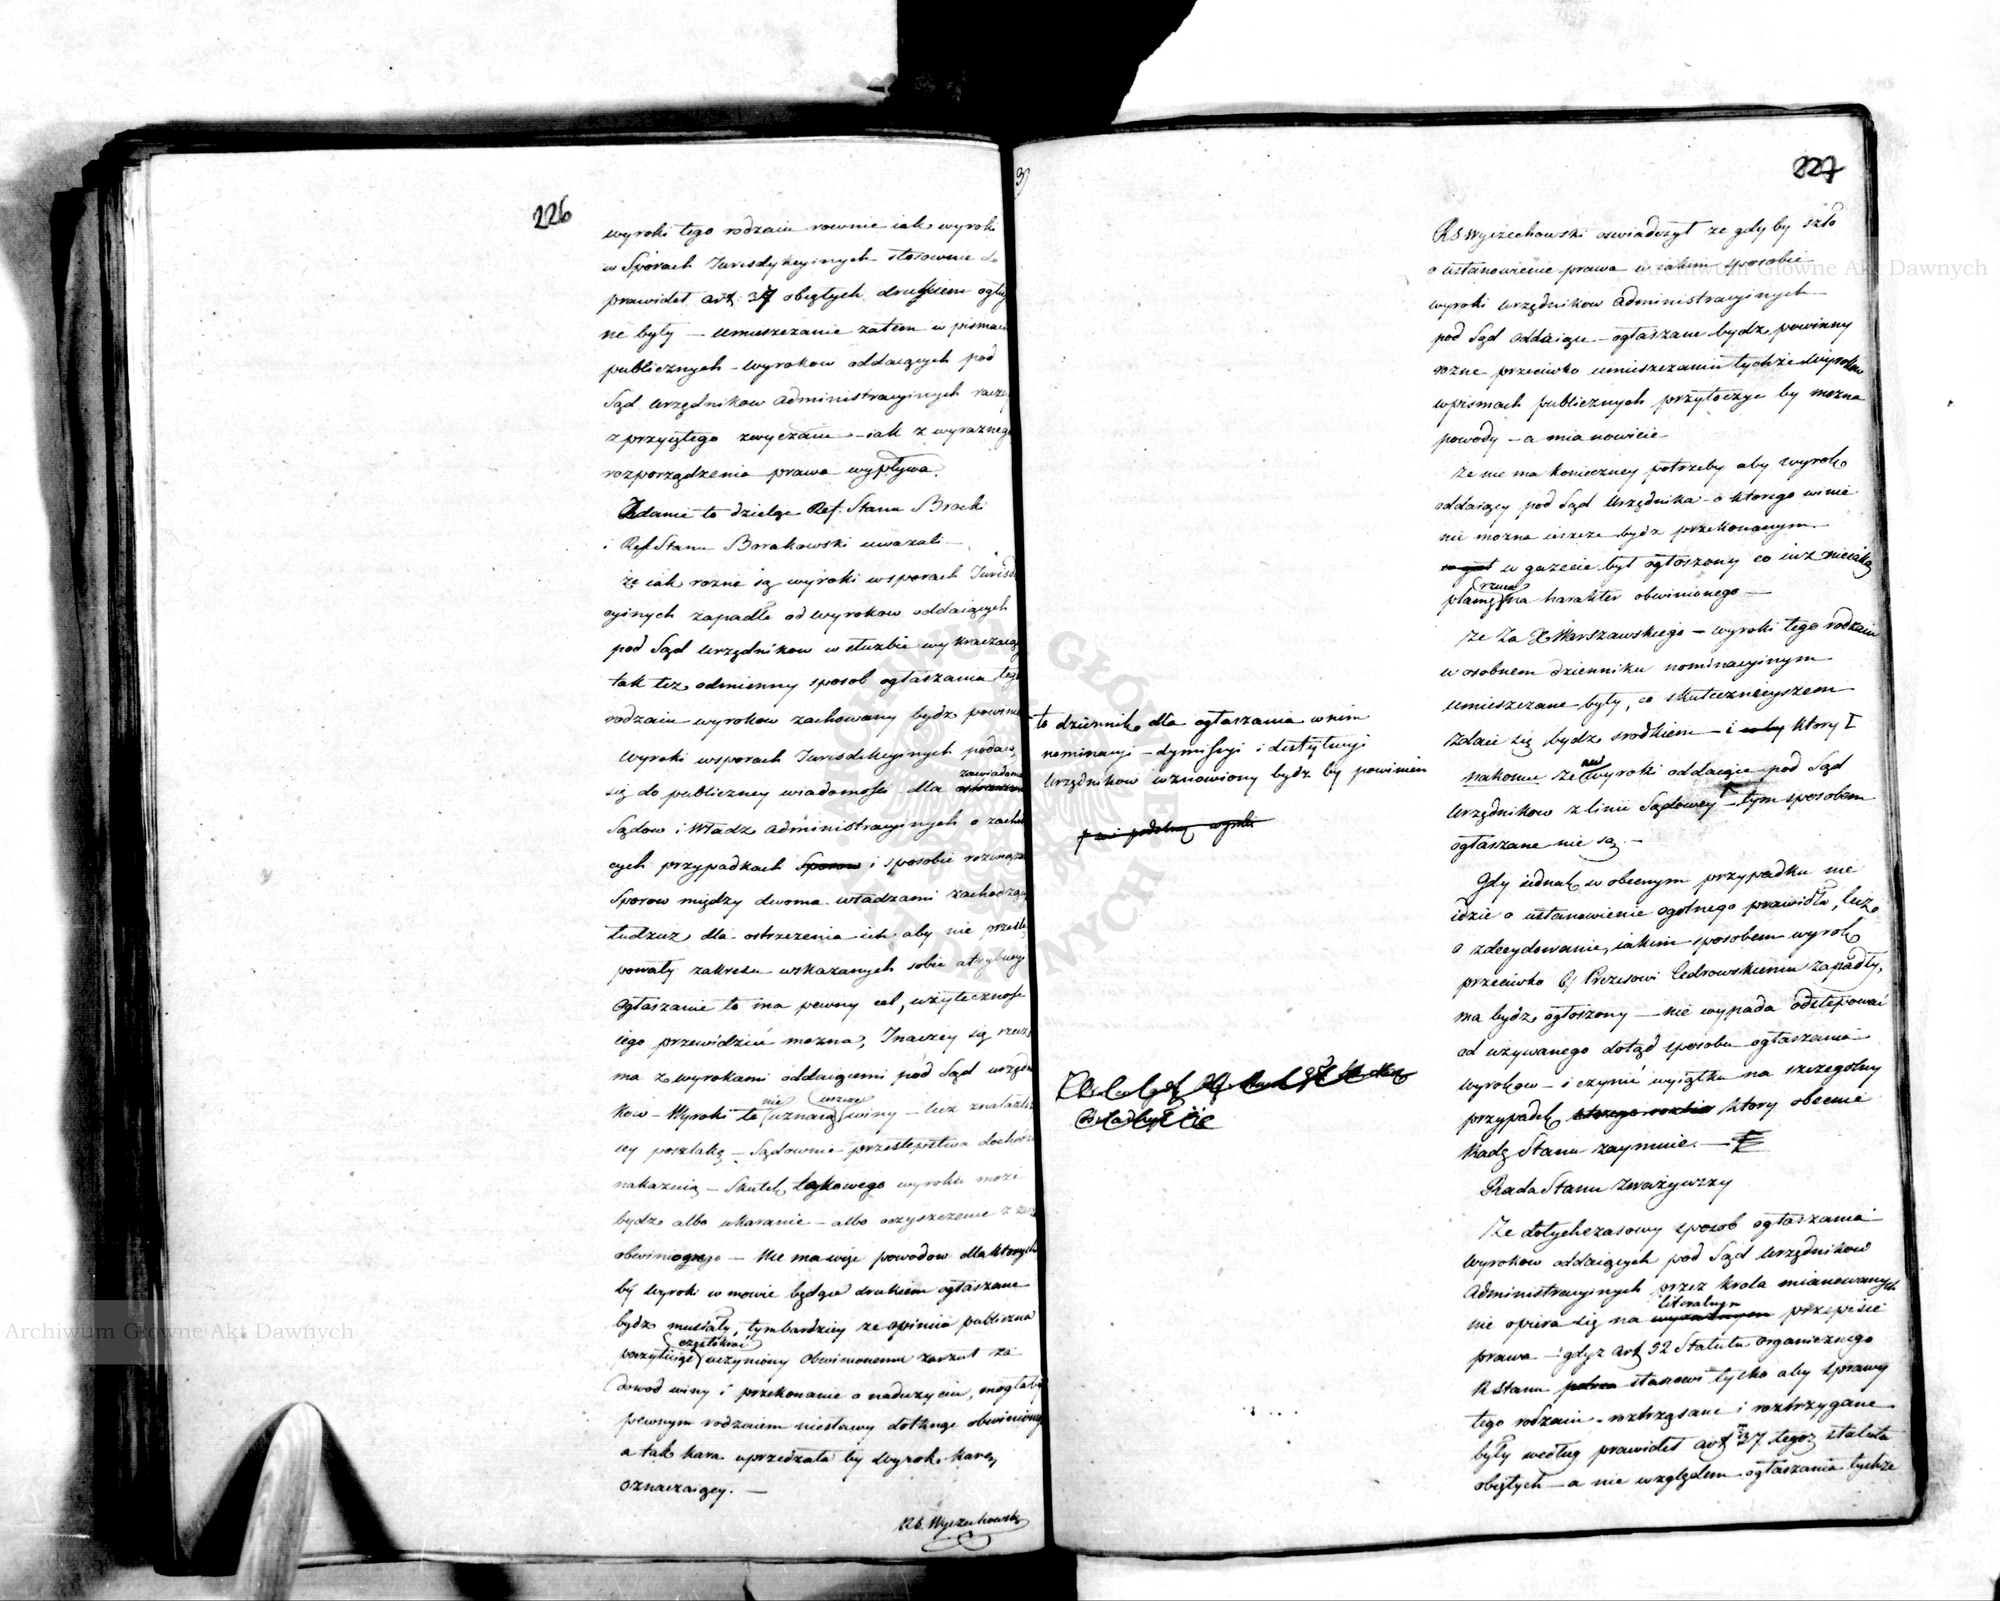 226
wyroki tego rodzaiu rownie iak wyroki
w Sporach Jurisdykcyinych stosownie do
prawideł art: 37 obiętych drukiem ogła
ne były — umieszczanie zatem w pismach
publicznych — wyrokow oddaiących pod
Sąd urzędnikow administracyinych raczey
z przyiętego zwyczaiu — iak z wyraznego
rozporządzenia prawa wypływa.
Zdanie to dzieląc Ref. Stanu Brocki
i Ref Stanu Borakowski uwazali —
że iak rozne są wyroki w sporach Jurisd
cyinych zapadłe od wyrokow oddaiących
pod Sąd urzędnikow w służbie wykraczaią
tak też odmienny sposob ogłaszania tego
rodzaiu wyrokow zachowany bydz powini
Wyroki w sporach Jurisdikcyinych podaią
się do publiczney wiadomości dla zawiadom
Sądow i Władz administracyinych o zacho
cych przypadkach Sporow i sposobie rozwiąza
Sporow między dwoma władzami zachodzą
tudzież dla ostrzeżenia ich aby nie przestę
powały zakresu wskazanych sobie atrybucyi
Ogłaszanie to ma pewny cel, użyteczność
iego przewidzieć można, Inaczey się rzecz
ma z wyrokami oddaiącemi pod Sąd urzędni
kow — Wyroki te nie uznaią ieszcze winy — lecz znalazłs
cy poszlakę — Sądownie przestępstwa dochodz
nakazuią — Skutek takowego wyroku może
bydz albo ukaranie — albo oczyszczenie z zarz
obwinionego — Nie ma więc powodow dla ktorych
by wyroki w mowie będące drukiem ogłaszane
bydz musiały, tymbardziey ze opinia publiczna
poczytuiąc częstokroć uczyniony obwinionemu zarzut za
dowod winy i przekonanie o nadużyciu, mogłaby
pewnym rodzaiem niesławy dotknąć obwinionego
a tak kara uprzedzała by wyrok karę
oznaczaiący. —
RS. Wyczechowski
227
RS Wyczechowski oswiadczył ze gdyby szło
o ustanowienie prawa w iakim sposobie
wyroki urzędnikow administracyinych
pod Sąd oddaiące — ogłaszane bydz powinny
rożne przeciwko umieszczaniu tychże wyrokow
w pismach publicznych przytoczyć by można
powody — a mianowicie
że nie ma konieczney potrzeby aby wyrok
oddaiący pod Sąd Urzędnika — o ktorego winie
nie można ieszcze bydz przekonanym
w gazecie był ogłoszony co iuż nieiaką
plamę rzuca na harakter obwinionego —
że za X Warszawskiego — wyroki tego rodzaiu
w osobnem dzienniku nominacyinym
umieszczane były, co skutecznieyszem
zdaie się bydz srodkiem — i coby ktory [
to dziennik dla ogłaszania w nim
nominacyi — dymissyi i destytucyi
Urzędnikow wznowiony bydz by powinien
nakoniec że wyroki oddaiące pod Sąd
urzędnikow z linii Sądowey — tym sposobem
ogłaszane nie są. —
Gdy iednak w obecnym przypadku nie
idzie o ustanowienie ogolnego prawidła, lecz
o zdecydowanie, iakim sposobem wyrok
przeciwko Prezesowi Cedrowskiemu zapadły,
ma bydz ogłoszony — nie wypada odstępować
od używanego dotąd sposobu ogłaszania
wyrokow — i czynić wyiątku na szczegolny
przypadek ktory obecnie
Radę Stanu zaymuie. —
Rada Stanu zważywszy
Że dotychczasowy sposob ogłaszania
wyrokow oddaiących pod Sąd Urzędnikow
Administracyinych przez Krola mianowanych
nie opiera się na literalnym przepisie
prawa — gdyz art 52 Statutu organicznego
R Stanu stanowi tylko aby sprawy
tego rodzaiu roztrząsane i roztrzygane
były według prawideł art 37 tegoz statutu
obiętych — a nie względem ogłaszania tychże
Archiwum Główne Akt Dawnych